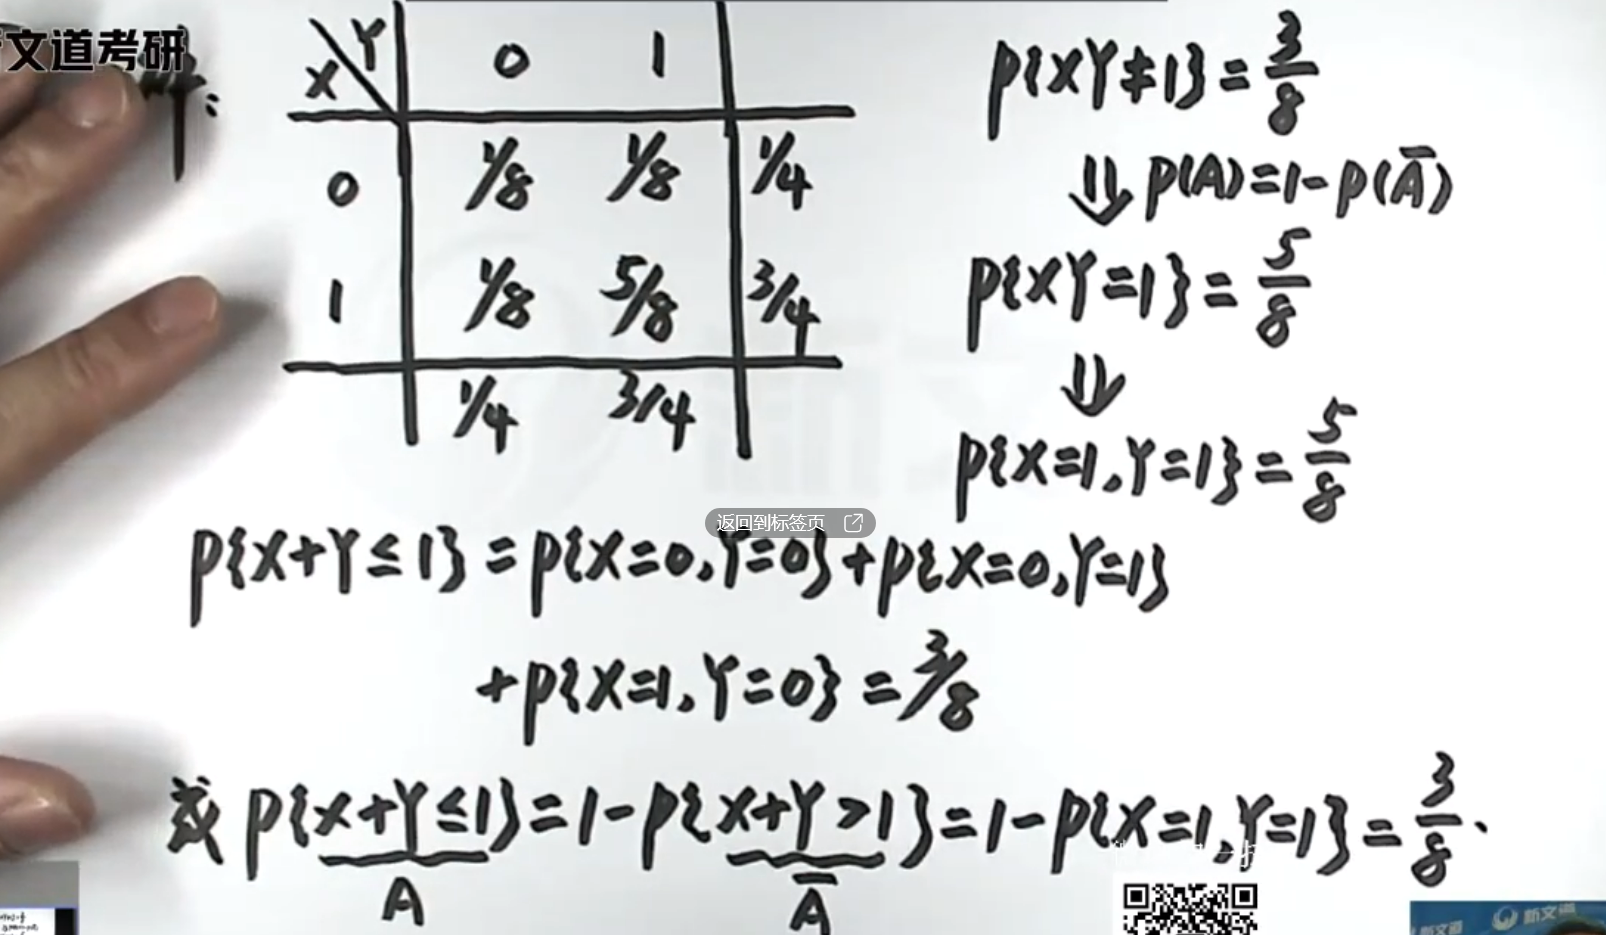 文道考研
X Y 0 1
0 1/8 1/8 1/4
1 1/8 5/8 3/4
1/4 3/4
P{XY≠1}=3/8
⇓ P(A)=1-P(A̅)
P{XY=1}=5/8
⇓
P{X=1,Y=1}=5/8
返回到标签页
P{X+Y≤1}=P{X=0,Y=0}+P{X=0,Y=1}
+P{X=1,Y=0}=3/8
或 P{X+Y≤1}=1-P{X+Y>1}=1-P{X=1,Y=1}=3/8.
A A̅
新文道
新文道